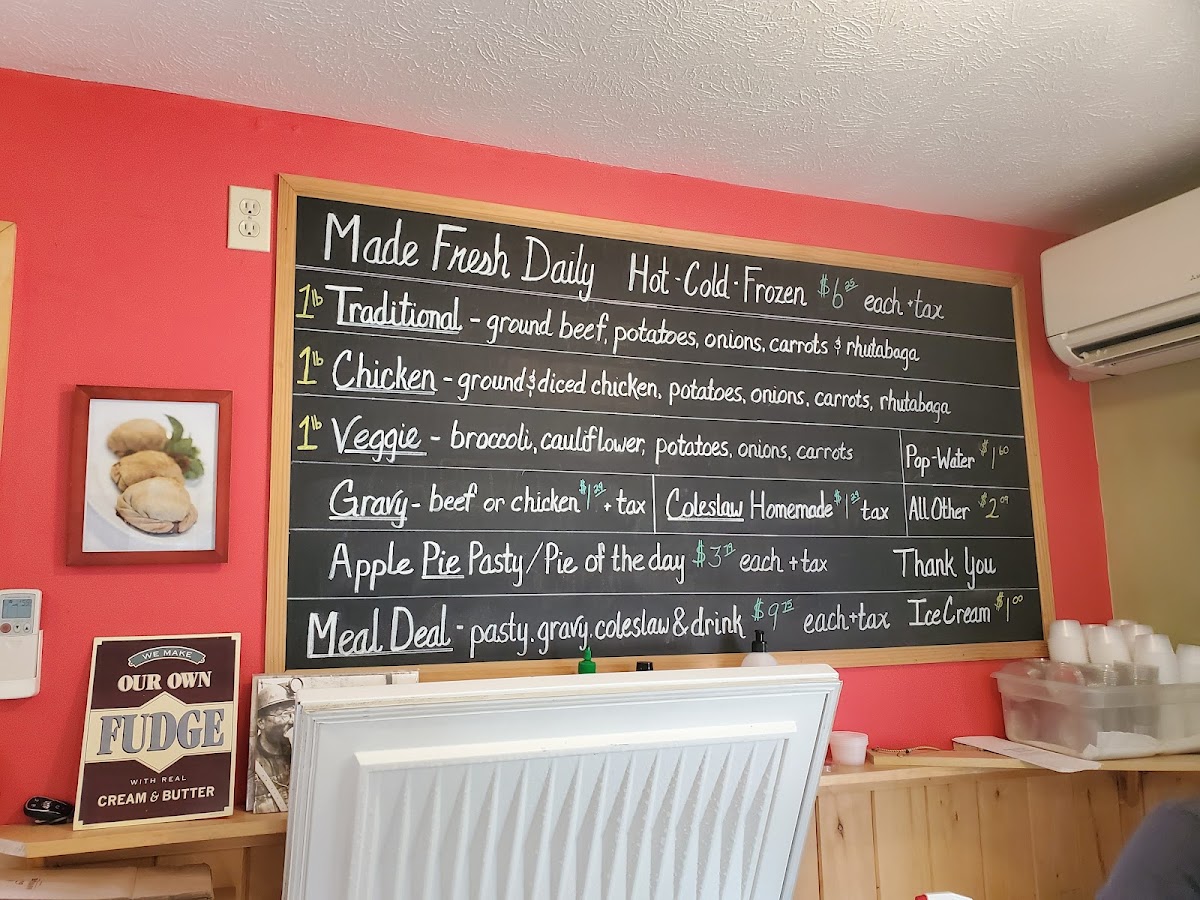 Made Fresh Daily Hot-Cold-Frozen $6.25 each + tax
1lb Traditional - ground beef, potatoes, onions, carrots & rhutabaga
1lb Chicken - ground & diced chicken, potatoes, onions, carrots, rhutabaga
1lb Veggie - broccoli, cauliflower, potatoes, onions, carrots
Pop-Water $1.60
Gravy - beef or chicken $1.29 + tax
Coleslaw Homemade $1.29 tax
All Other $2.09
Apple Pie Pasty/Pie of the day $3.79 each + tax
Thank You
Meal Deal - pasty, gravy, coleslaw & drink $9.75 each + tax
Ice Cream $1.00
WE MAKE
OUR OWN
FUDGE
WITH REAL
CREAM & BUTTER